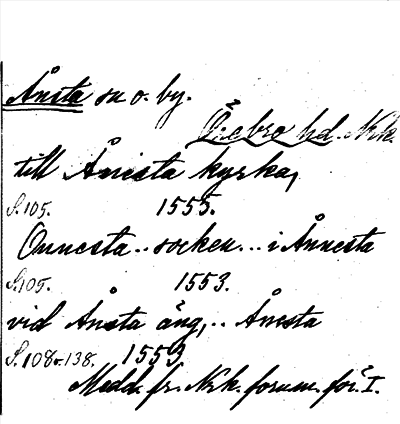 Ånsta sn o. by.
Örebro hd. Nrk.
till Ånista kyrka,
S. 105. 1555.
Önnesta .. socken ... i Ånnesta
S. 105. 1553.
vid Ånsta äng, .. Ånesta
S. 108 o. 138. 1553.
Medd. fr. Nrk. fornm. för. I.